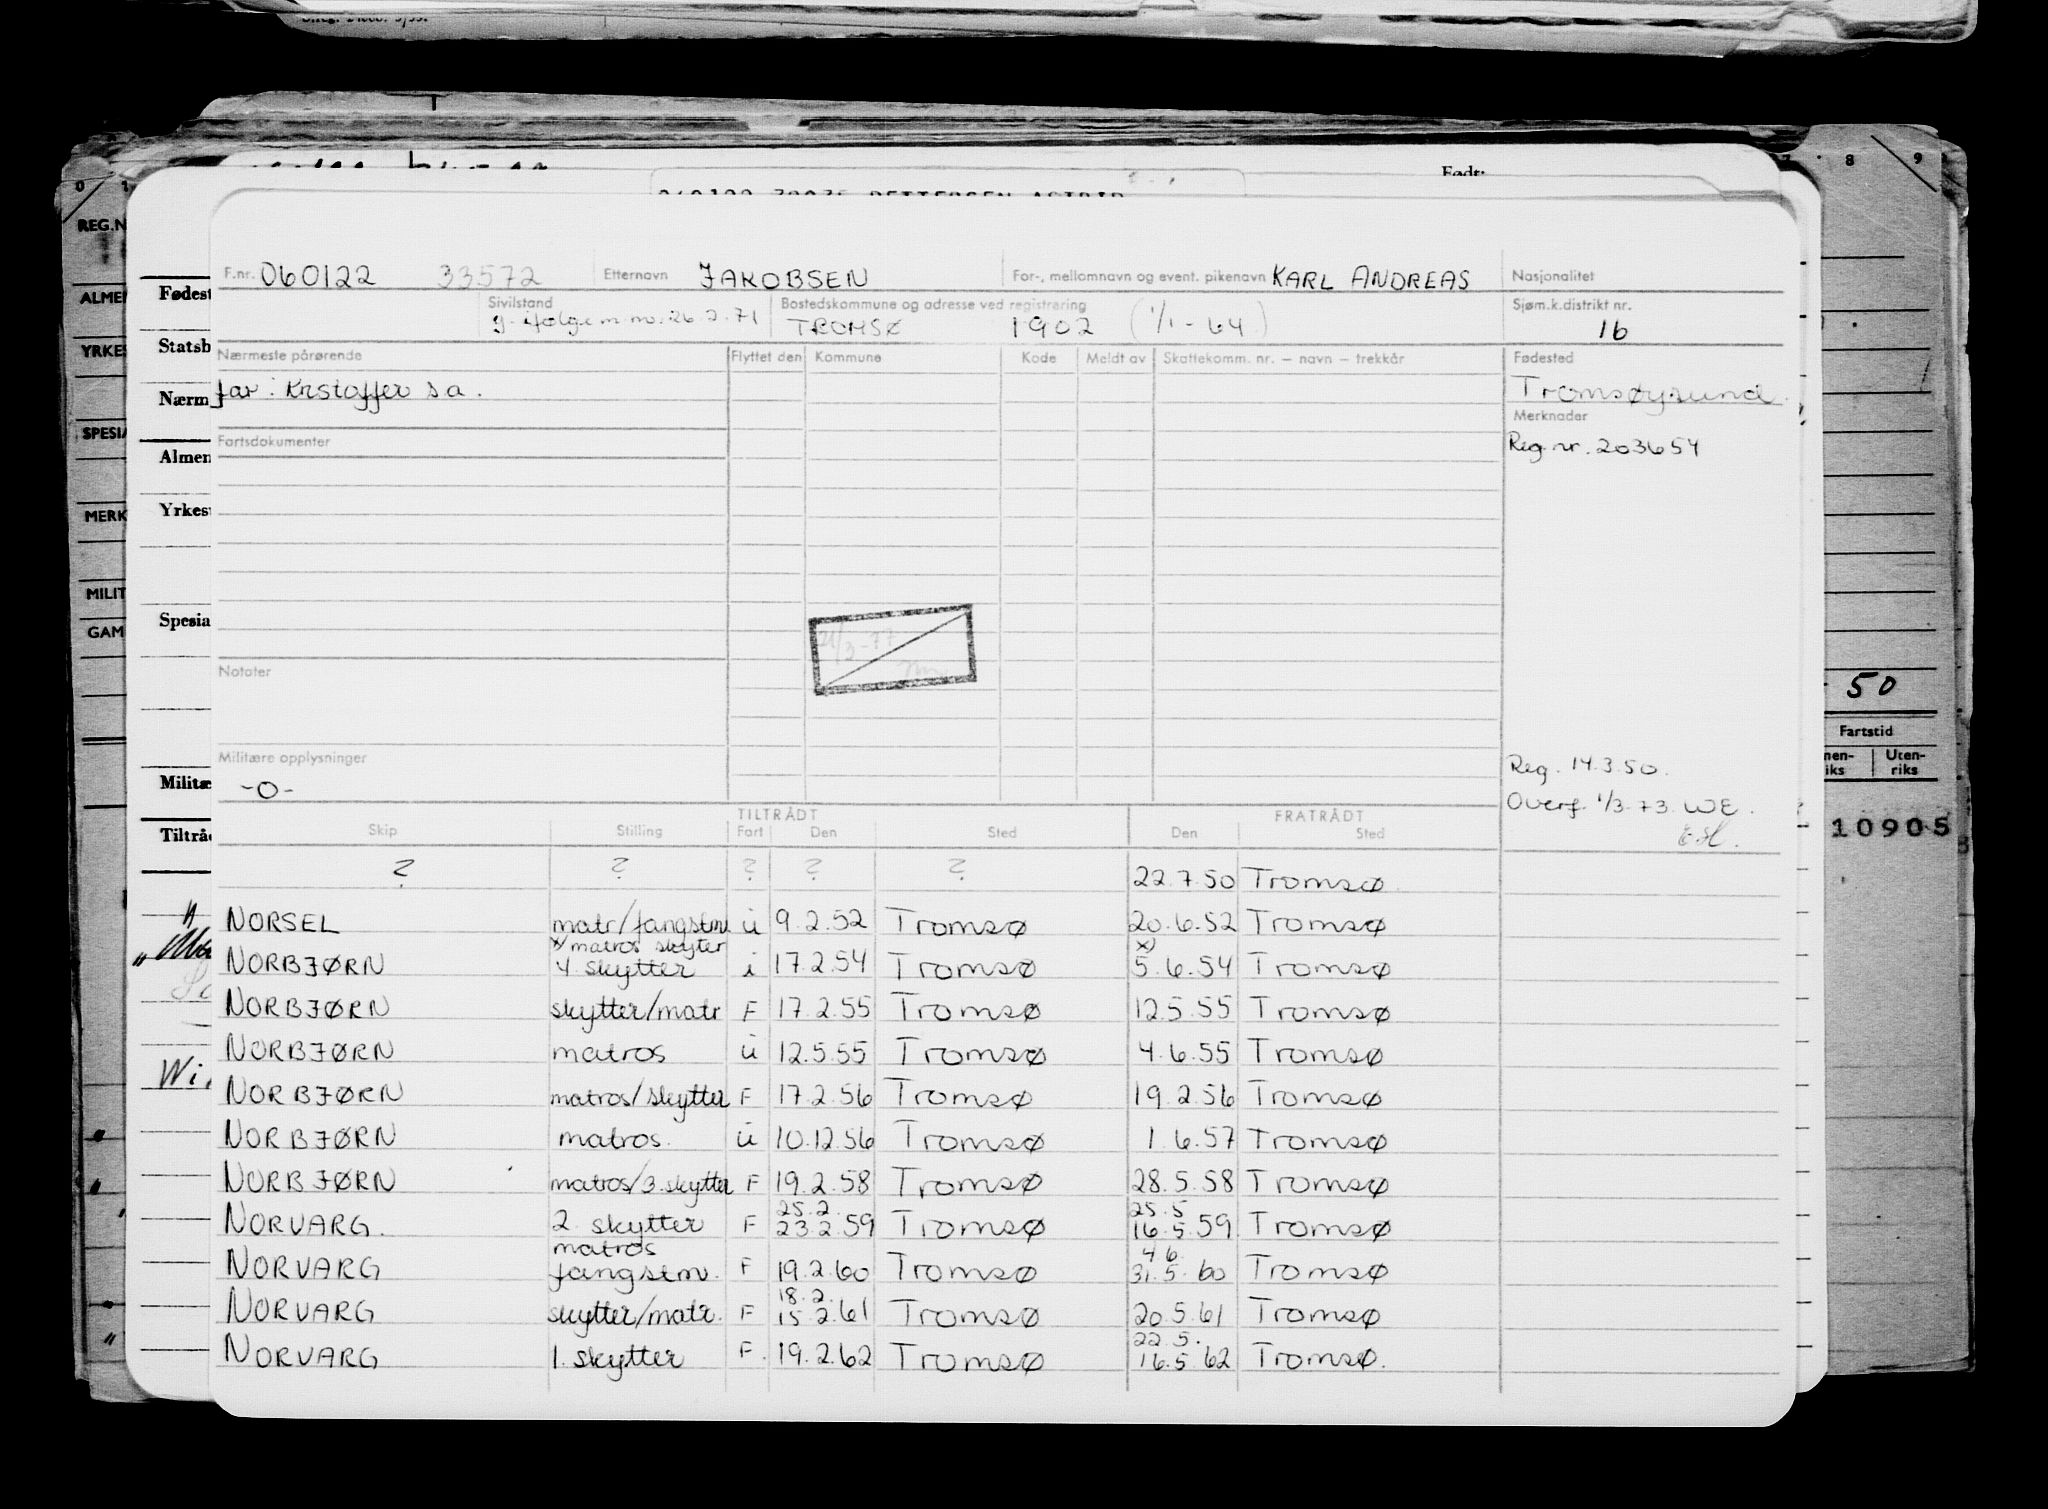 Født:
REG.N
ALMEN
YRKES
SPESIA
MERK
MILIT
GAM
Fødest
Statsb
Nærm
Almen
Yrkes
Spesia
Militæ
Tiltråd
8 9
50
Fartstid
Uten-
riks
10905
F.nr. 060122 33572 Etternavn JAKOBSEN For-, mellomnavn og event. pikenavn KARL ANDREAS Nasjonalitet
Sivilstand Bostedskommune og adresse ved registrering Sjøm.k.distrikt nr.
g. ifølge m.no. 26.2.71 TROMSØ 1902 (1/1-64) 16
Nærmeste pårørende Flyttet den Kommune Kode Meldt av Skattekomm. nr. – navn – trekkår Fødested
far: Kristoffer s.a. Tromsøysund.
Merknader
Fartsdokumenter Reg. nr. 203654
21/3-77
Notater
Militære opplysninger Reg. 14.3.50.
-0- Overf. 1/3-73. WE.
TILTRÅDT FRATRÅDT
Skip Stilling Fart Den Sted Den Sted
? ? ? ? ? 22.7.50 Tromsø.
NORSEL matr/fangstm. u 9.2.52 Tromsø 20.6.52 Tromsø
x/matros skyter x)
NORBJØRN 4. skytter i 17.2.54 Tromsø 5.6.54 Tromsø
NORBJØRN skytter/matr F 17.2.55 Tromsø 12.5.55 Tromsø
NORBJØRN matros u 12.5.55 Tromsø 4.6.55 Tromsø
NORBJØRN matros/skytter F 17.2.56 Tromsø 19.2.56 Tromsø
NORBJØRN matros. u 10.12.56 Tromsø 1.6.57 Tromsø
NORBJØRN matros/3.skytter F 19.2.58 Tromsø 28.5.58 Tromsø
25.2. 25.5
NORVARG. 2. skytter F 23.2.59 Tromsø 16.5.59. Tromsø
matros 4.6.
NORVARG fangstm. F 19.2.60 Tromsø 31.5.60 Tromsø
18.2.
NORVARG skytter/matr. F 15.2.61 Tromsø 20.5.61 Tromsø
22.5.
NORVARG 1. skytter F. 19.2.62 Tromsø 16.5.62 Tromsø.